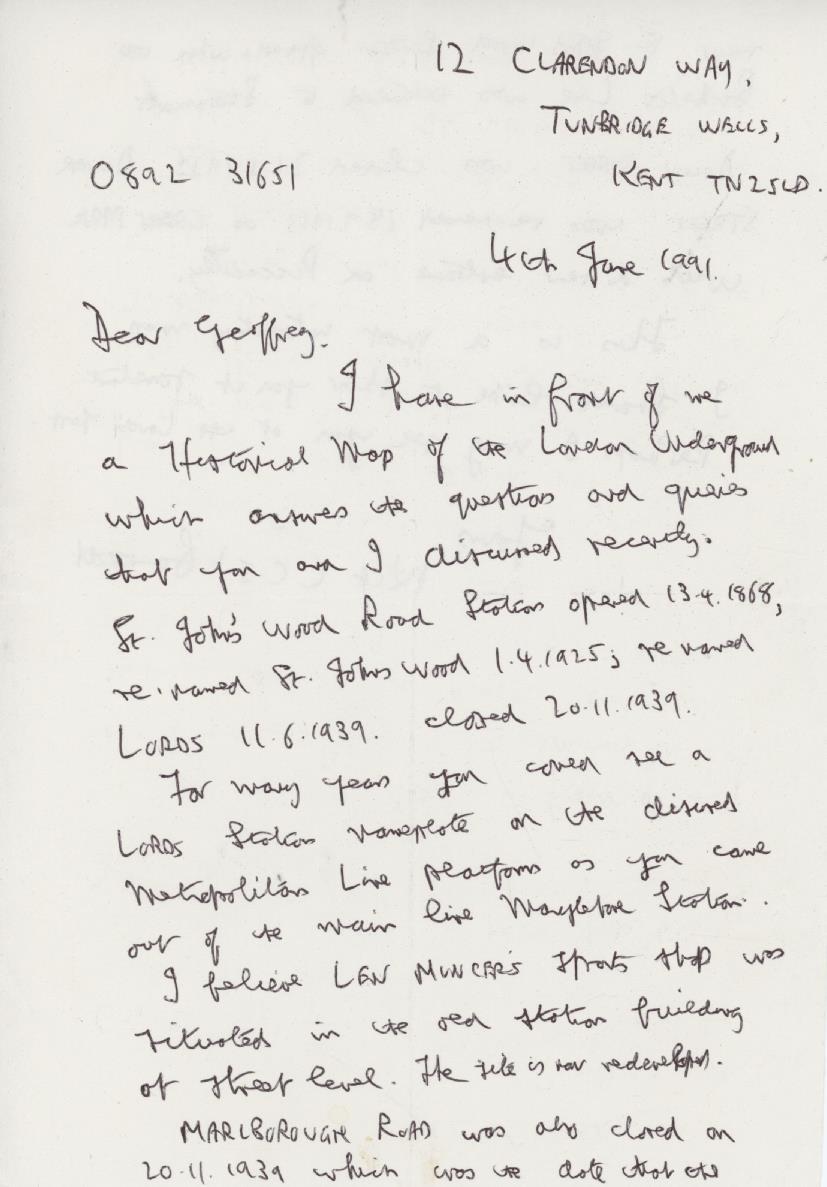 12 CLARENDON WAY,
TUNBRIDGE WELLS,
0892 31651
KENT TN2 5LD.
4th June 1991.
Dear Geoffrey.
I have in front of me
a Historical Map of the London Underground
which answers the questions and queries
that you and I discussed recently.
St. John's Wood Road Station opened 13.4.1868,
re-named St. Johns Wood 1.4.1925; re named
LORDS 11.6.1939. closed 20.11.1939.
For many years you could see a
LORDS Station nameplate on the disused
Metropolitan Line platforms as you came
out of the main line Marylebone Station.
I believe LEN MUNCER'S sports shop was
situated in the old station building
at street level. The site is now redeveloped.
MARLBOROUGH ROAD was also closed on
20.11.1939 which was the date that the